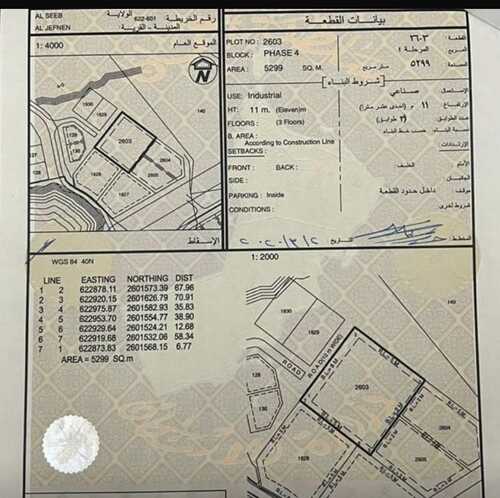 AL SEEB
الولاية
AL JEFNEN
المدينة - القرية
622-601
رقم الخريطة
1: 4000
الموقع العام
N
2603
2604
2605
1827
1828
1829
1830
140
129
128
130
الإسقاط
بيانات القطعة
PLOT NO : 2603
القطعة : ٢٦٠٣
BLOCK : PHASE 4
المربع : المرحلة ٤
AREA : 5299 SQ. M.
المساحة : ٥٢٩٩ متر مربع
شروط البناء
USE: Industrial
الإستعمال : صناعي
HT: 11 m. (Eleven)m
الإرتفاع : ١١ م (احدى عشر مترا)
FLOORS : (3 Floors)
عدد الطوابق : (٣ طوابق)
B. AREA : According to Construction Line
نسبة البناء : حسب خط البناء
SETBACKS :
الإرتدادات :
FRONT : BACK :
الأمام : الخلف
SIDE :
الجانبان :
PARKING : Inside
موقف : داخل حدود القطعة
CONDITIONS :
شروط أخرى
المخطط :
تاريخ : ٢٠٢٠/٣/٢
WGS 84 40N
1: 2000
LINE EASTING NORTHING DIST
1 2 622878.11 2601573.39 67.96
2 3 622920.15 2601626.79 70.91
3 4 622975.87 2601582.93 35.83
4 5 622953.70 2601554.77 38.90
5 6 622929.64 2601524.21 12.68
6 7 622919.68 2601532.06 58.34
7 1 622873.83 2601568.15 6.77
AREA = 5299 SQ.m
1830
1829
140
ROAD
ROAD(10 m WIDE)
2603
128
130
2604
2605
1828